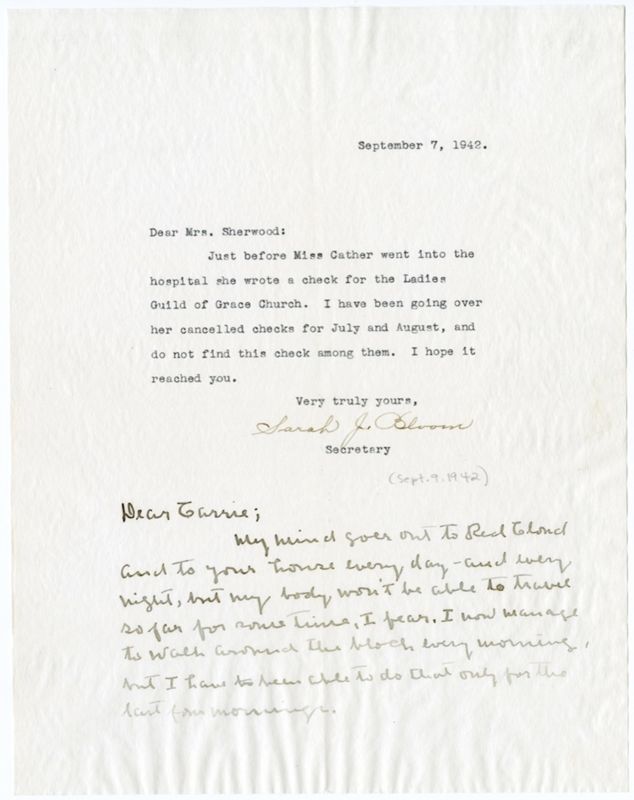 September 7, 1942.
Dear Mrs. Sherwood:
Just before Miss Cather went into the
hospital she wrote a check for the Ladies
Guild of Grace Church. I have been going over
her cancelled checks for July and August, and
do not find this check among them. I hope it
reached you.
Very truly yours,
Sarah J. Bloom
Secretary
(Sept. 9. 1942)
Dear Carrie;
My mind goes out to Red Cloud
and to your house every day - and every
night, but my body won't be able to travel
so far for some time, I fear. I now manage
to walk around the block every morning,
but I have been able to do that only for the
last four mornings.